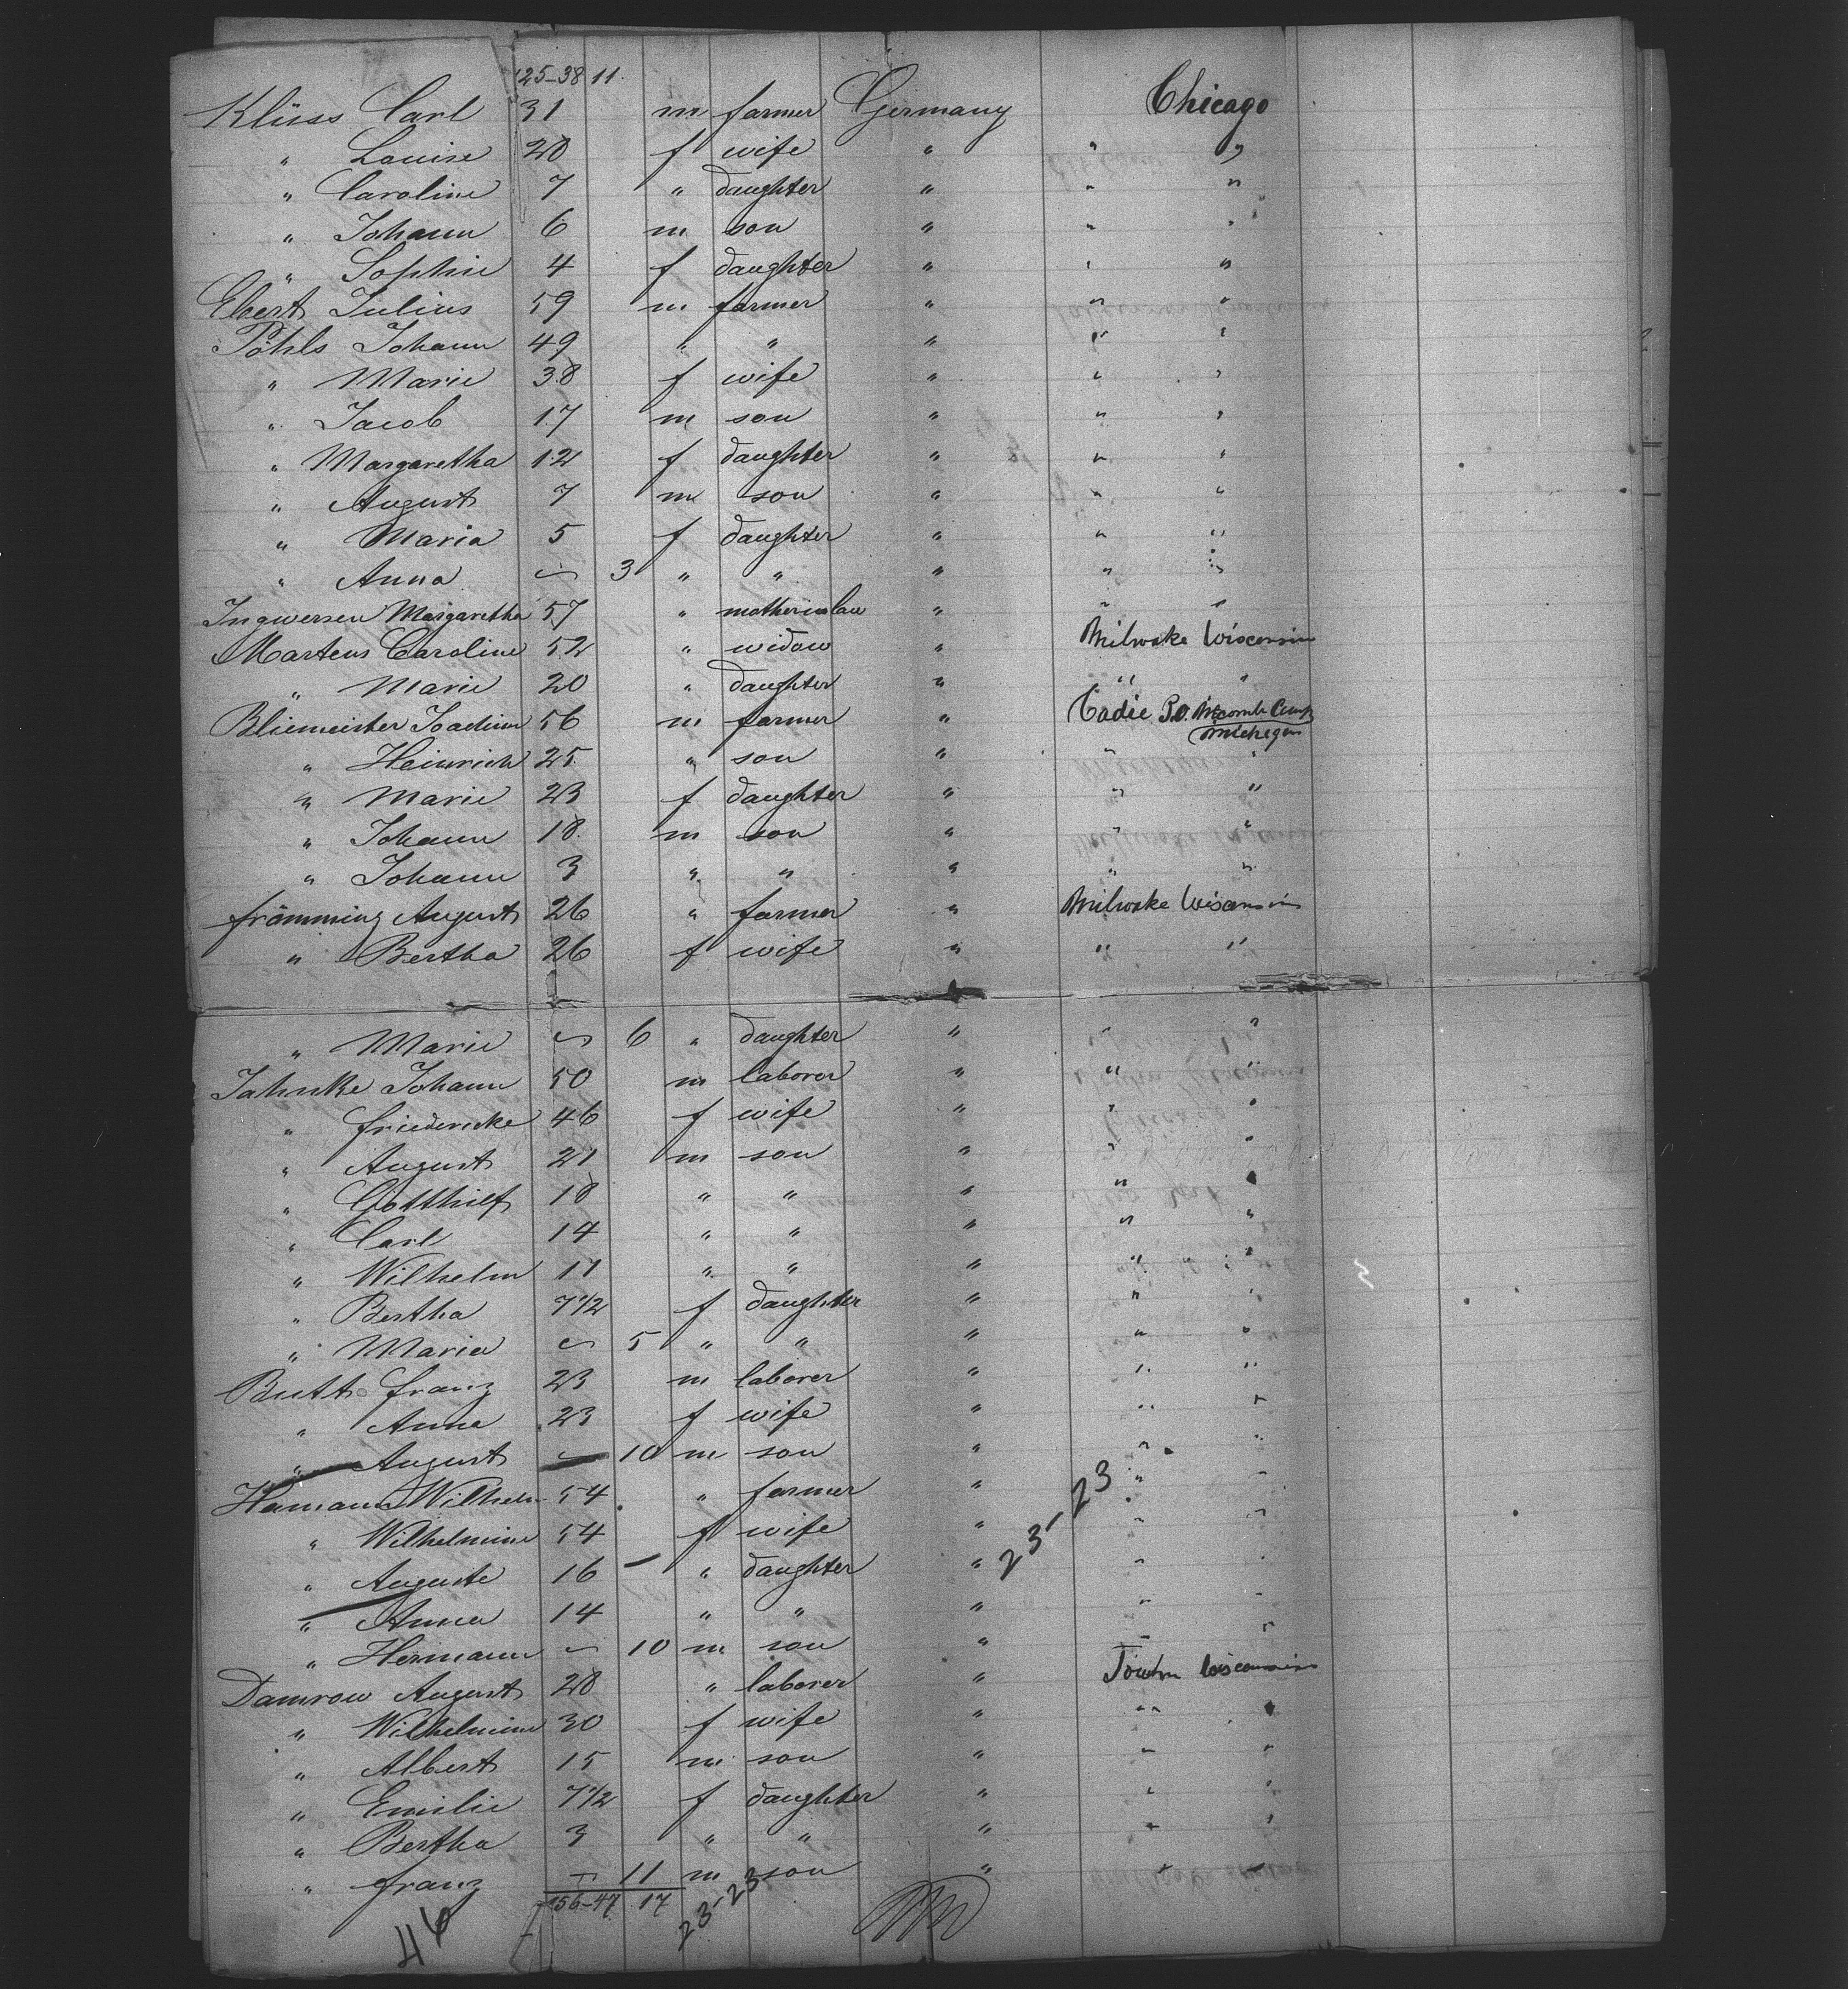 125-38 11.
Klüss Carl 31 m farmer Germany Chicago
" Louise 28 f wife " " "
" Caroline 7 " daughter " " "
" Johann 6 m son " " "
" Sophie 4 f daughter " " "
Ebert Julius 59 m farmer " " "
Pohls Johann 49 " " " " "
" Marie 38 f wife " " "
" Jacob 17 m son " " "
" Margaretha 12 f daughter " " "
" August 7 m son " " "
" Maria 5 f daughter " " "
" Anna - 3 " " " " "
Ingwersen Margaretha 57 " motherinlaw " " "
Martens Caroline 52 " widow " Milwake Wisconsin
" Marie 20 " daughter " " "
Bliemeister Joachim 56 m farmer " Cadie P.O. Macomb
Michigan
" Heinrich 25 " son " " "
" Marie 23 f daughter " " "
" Johann 18 m son " " "
" Johann 3 " " " " "
Främming August 26 " farmer " Milwake Wisconsin
" Bertha 26 f wife " " "
" Marie - 6 " daughter " " "
Jahnke Johann 50 m laborer " " "
" Friedericke 46 f wife " " "
" August 21 m son " " "
" Gotthilf 18 " " " " "
" Carl 14 " " " " "
" Wilhelm 11 " " " " "
" Bertha 7 1/2 f daughter " " "
" Maria - 5 " " " " "
Butt Franz 23 m laborer " " "
" Anna 23 f wife " " "
" August - 10 m son " " "
Hamann Wilhelm 54 " farmer " " "
" Wilhelmine 54 f wife " " "
" Auguste 16 - " daughter " 23-23 " "
" Anna 14 " " " " "
" Hermann - 10 m son " " "
Damrow August 28 " laborer " Wisconsin
" Wilhelmine 30 f wife " " "
" Albert 15 m son " " "
" Emilie 7 1/2 f daughter " " "
" Bertha 3 " " " " "
" Franz - 11 m son " " "
156-47 17 23-23
46